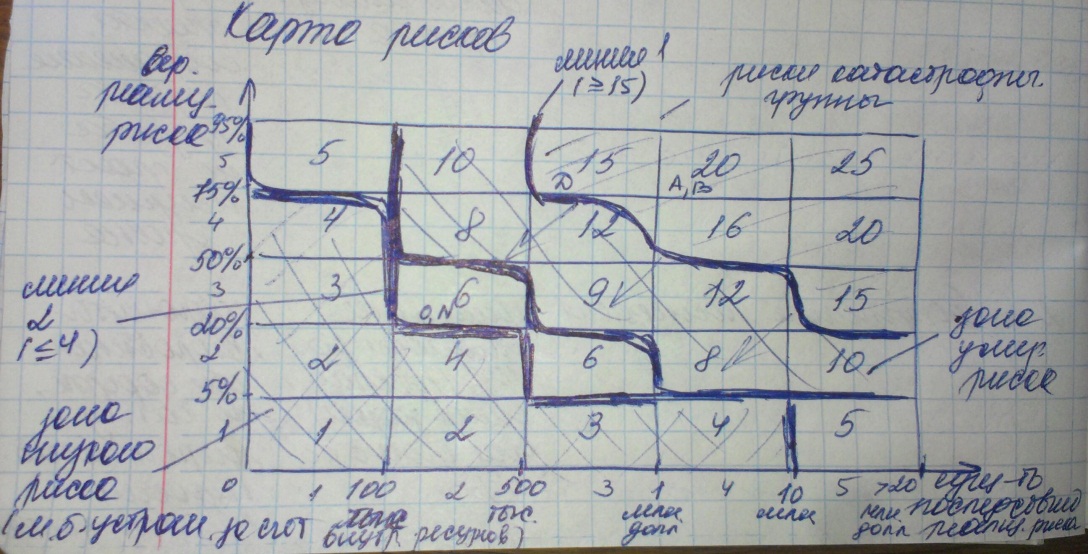 Карта рисков
вер.
риска 95%
линия 1
(≥15)
риски катастрофы.
группы
5 5 10 15 20 25
Д А, В
75%
4 4 8 12 16 20
50%
линия
2
(≤4)
3 3 6 9 12 15
O, N
20%
2 2 4 6 8 10
зона
умер.
риска
5%
1 1 2 3 4 5
зона
низкого
риска
(м.б. устран. за счет
внутр. ресурсов)
0 1 100 2 500 3 1 4 10 5 >20
тыс. тыс. млн долл млн млн долл
последствий
реализ. риска